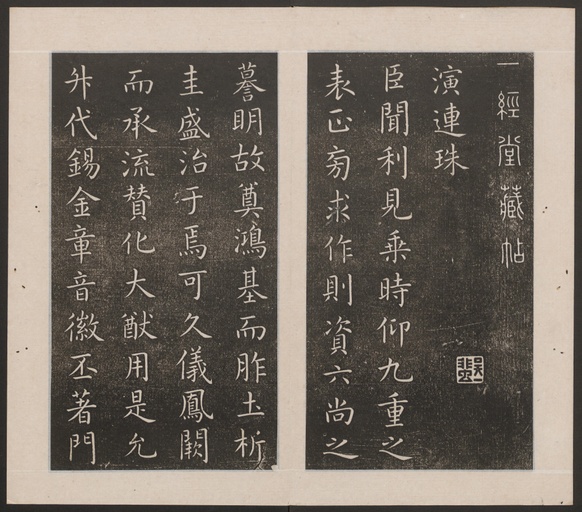 一經堂藏帖
演連珠
臣聞利見乗時仰九重之
表正旁求作則資六尚之
謩明故奠鴻基而胙土析
圭盛治于焉可久儀鳳闕
而承流賛化大猷用是允
升代錫金章音徽丕著門